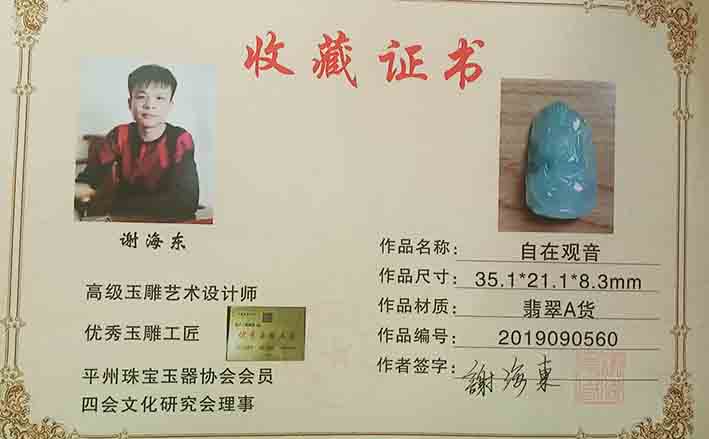 收藏证书
谢海东
高级玉雕艺术设计师
优秀玉雕工匠
平州珠宝玉器协会会员
四会文化研究会理事
作品名称： 自在观音
作品尺寸： 35.1*21.1*8.3mm
作品材质： 翡翠A货
作品编号： 2019090560
作者签字： 謝海東